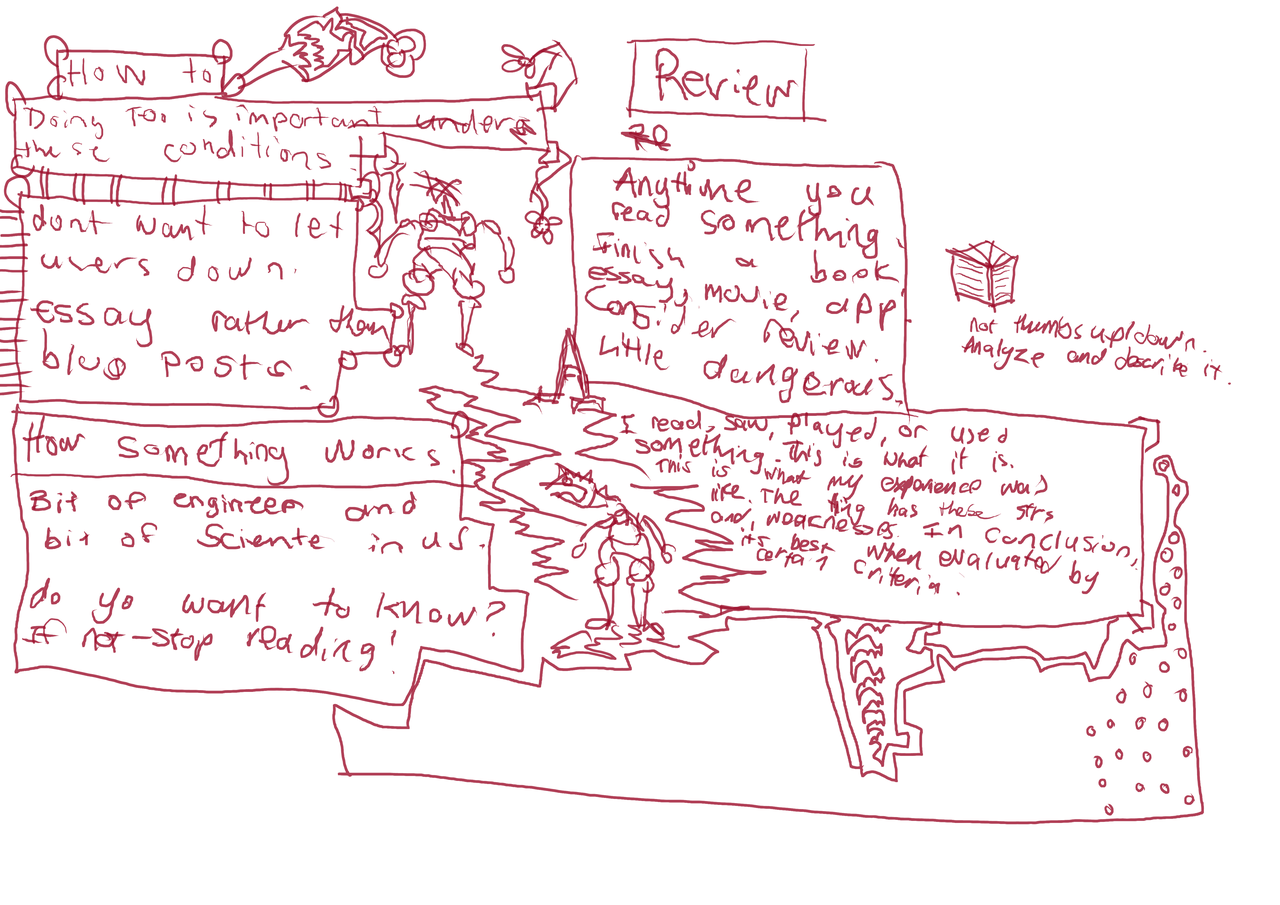 How to
Doing Too is important under
these conditions
dont want to let
users down.
essay rather than
blug posts.
How something works.
Bit of engineer and
bit of Sciente in us.
do yo want to know?
If not-stop reading!
Review
Anytime you
read something
Finish a book
essay, movie, app
Consider review.
Little dangerous.
not thumbs up/down.
Analyze and describe it.
I read, saw, played, or used
something. This is what it is.
This is what my experience was
like. The thing has these strs
and weaknesses. In Conclusion,
its best when evaluated by
certain criteria.